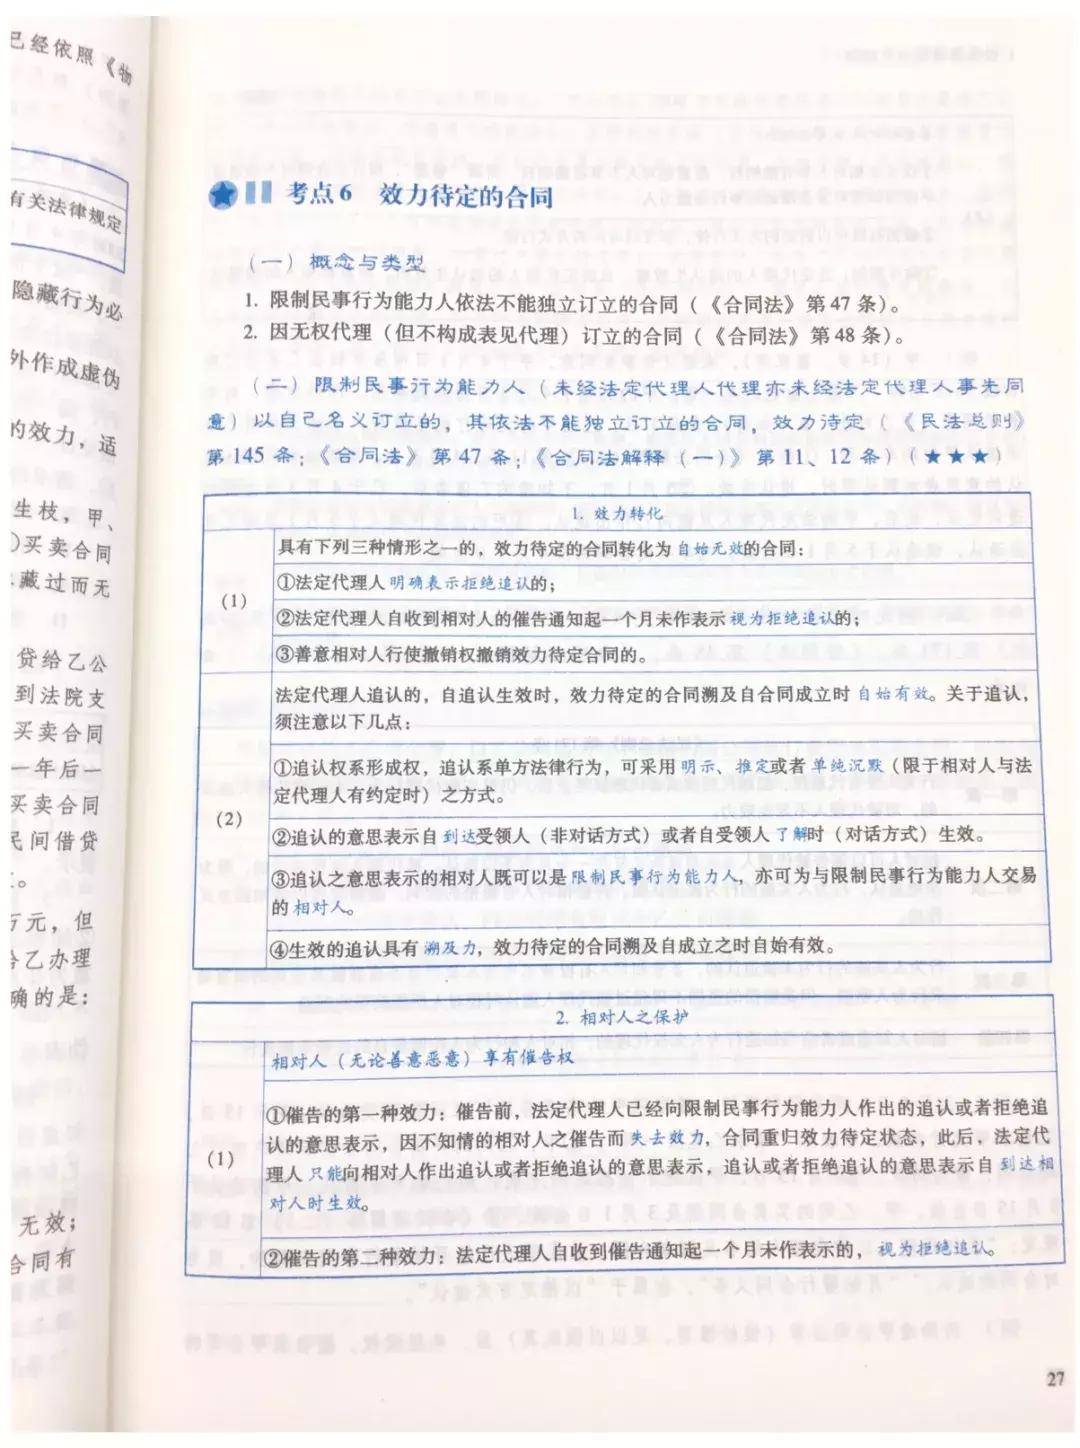 已经依照《物
有关法律规定
隐藏行为必
外作成虚伪
的效力，适
生枝，甲、
买卖合同
藏过而无
贷给乙公
到法院支
买卖合同
一年后一
买卖合同
民间借贷
万元，但
给乙办理
确的是：
无效；
合同有
考点6 效力待定的合同
（一）概念与类型
1. 限制民事行为能力人依法不能独立订立的合同（《合同法》第47条）。
2. 因无权代理（但不构成表见代理）订立的合同（《合同法》第48条）。
（二）限制民事行为能力人（未经法定代理人代理亦未经法定代理人事先同
意）以自己名义订立的，其依法不能独立订立的合同，效力待定（《民法总则》
第145条；《合同法》第47条；《合同法解释（一）》第11、12条）（★★★）
1. 效力转化
(1)
具有下列三种情形之一的，效力待定的合同转化为自始无效的合同：
①法定代理人明确表示拒绝追认的；
②法定代理人自收到相对人的催告通知起一个月未作表示视为拒绝追认的；
③善意相对人行使撤销权撤销效力待定合同的。
(2)
法定代理人追认的，自追认生效时，效力待定的合同溯及自合同成立时自始有效。关于追认，
须注意以下几点：
①追认权系形成权，追认系单方法律行为，可采用明示、推定或者单纯沉默（限于相对人与法
定代理人有约定时）之方式。
②追认的意思表示自到达受领人（非对话方式）或者自受领人了解时（对话方式）生效。
③追认之意思表示的相对人既可以是限制民事行为能力人，亦可为与限制民事行为能力人交易
的相对人。
④生效的追认具有溯及力，效力待定的合同溯及自成立之时自始有效。
2. 相对人之保护
(1)
相对人（无论善意恶意）享有催告权
①催告的第一种效力：催告前，法定代理人已经向限制民事行为能力人作出的追认或者拒绝追
认的意思表示，因不知情的相对人之催告而失去效力，合同重归效力待定状态，此后，法定代
理人只能向相对人作出追认或者拒绝追认的意思表示，追认或者拒绝追认的意思表示自到达相
对人时生效。
②催告的第二种效力：法定代理人自收到催告通知起一个月未作表示的，视为拒绝追认。
27